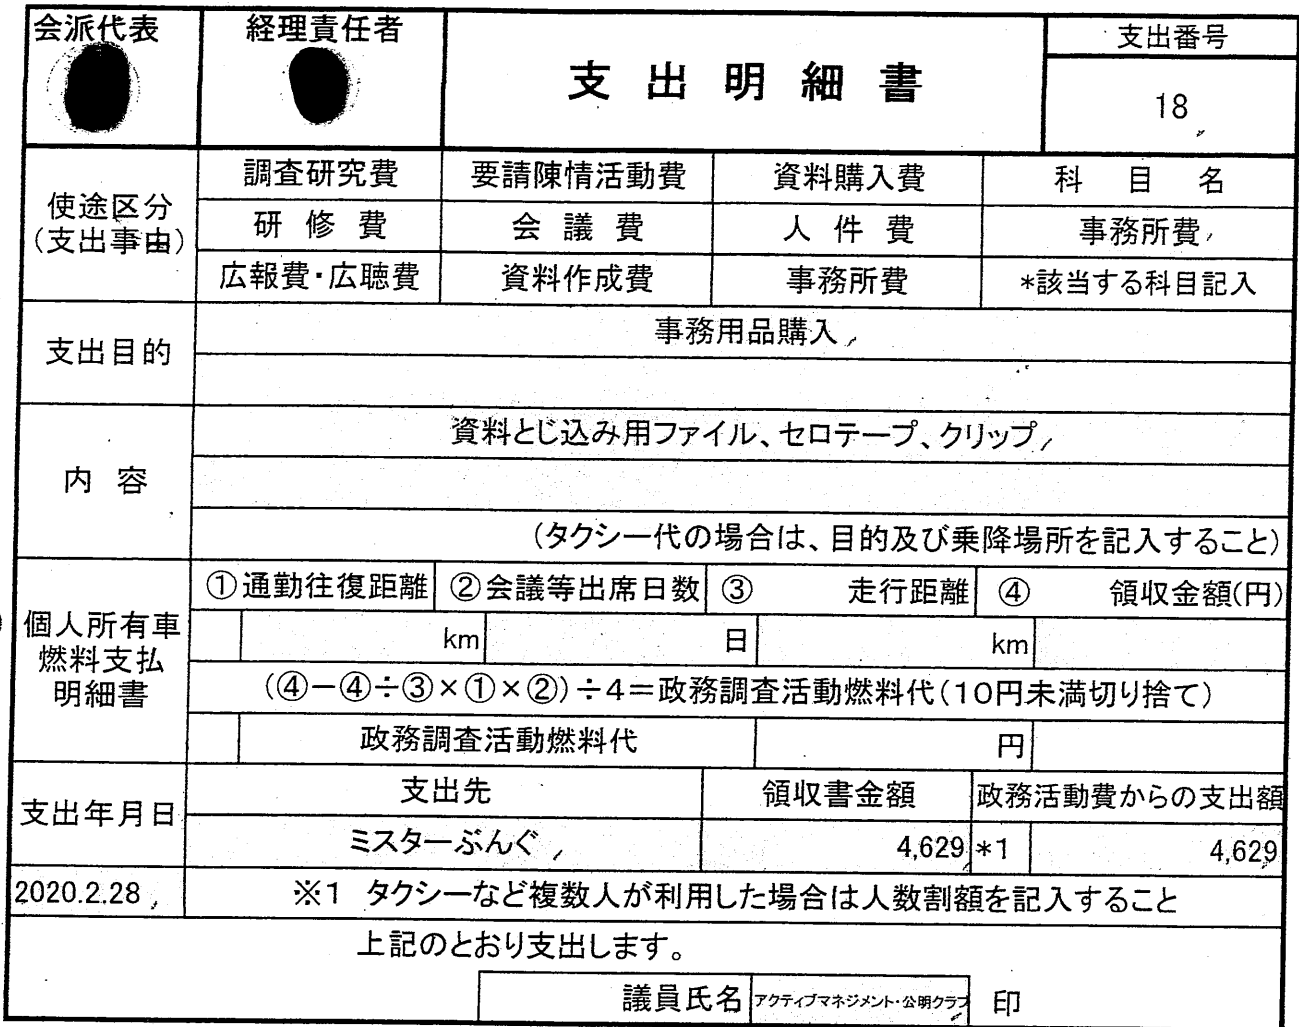 会派代表 経理責任者 支出明細書 支出番号
18
使途区分(支出事由) 調査研究費 要請陳情活動費 資料購入費 科目名
研修費 会議費 人件費 事務所費
広報費・広聴費 資料作成費 事務所費 *該当する科目記入
支出目的 事務用品購入
内容 資料とじ込み用ファイル、セロテープ、クリップ
(タクシー代の場合は、目的及び乗降場所を記入すること)
個人所有車燃料支払明細書 ①通勤往復距離 ②会議等出席日数 ③走行距離 ④領収金額(円)
km 日 km
(④-④÷③×①×②)÷4=政務調査活動燃料代(10円未満切り捨て)
政務調査活動燃料代 円
支出年月日 支出先 領収書金額 政務活動費からの支出額
ミスターぶんぐ 4,629 *1 4,629
2020.2.28 ※1 タクシーなど複数人が利用した場合は人数割額を記入すること
上記のとおり支出します。
議員氏名 アクティブマネジメント・公明クラブ 印